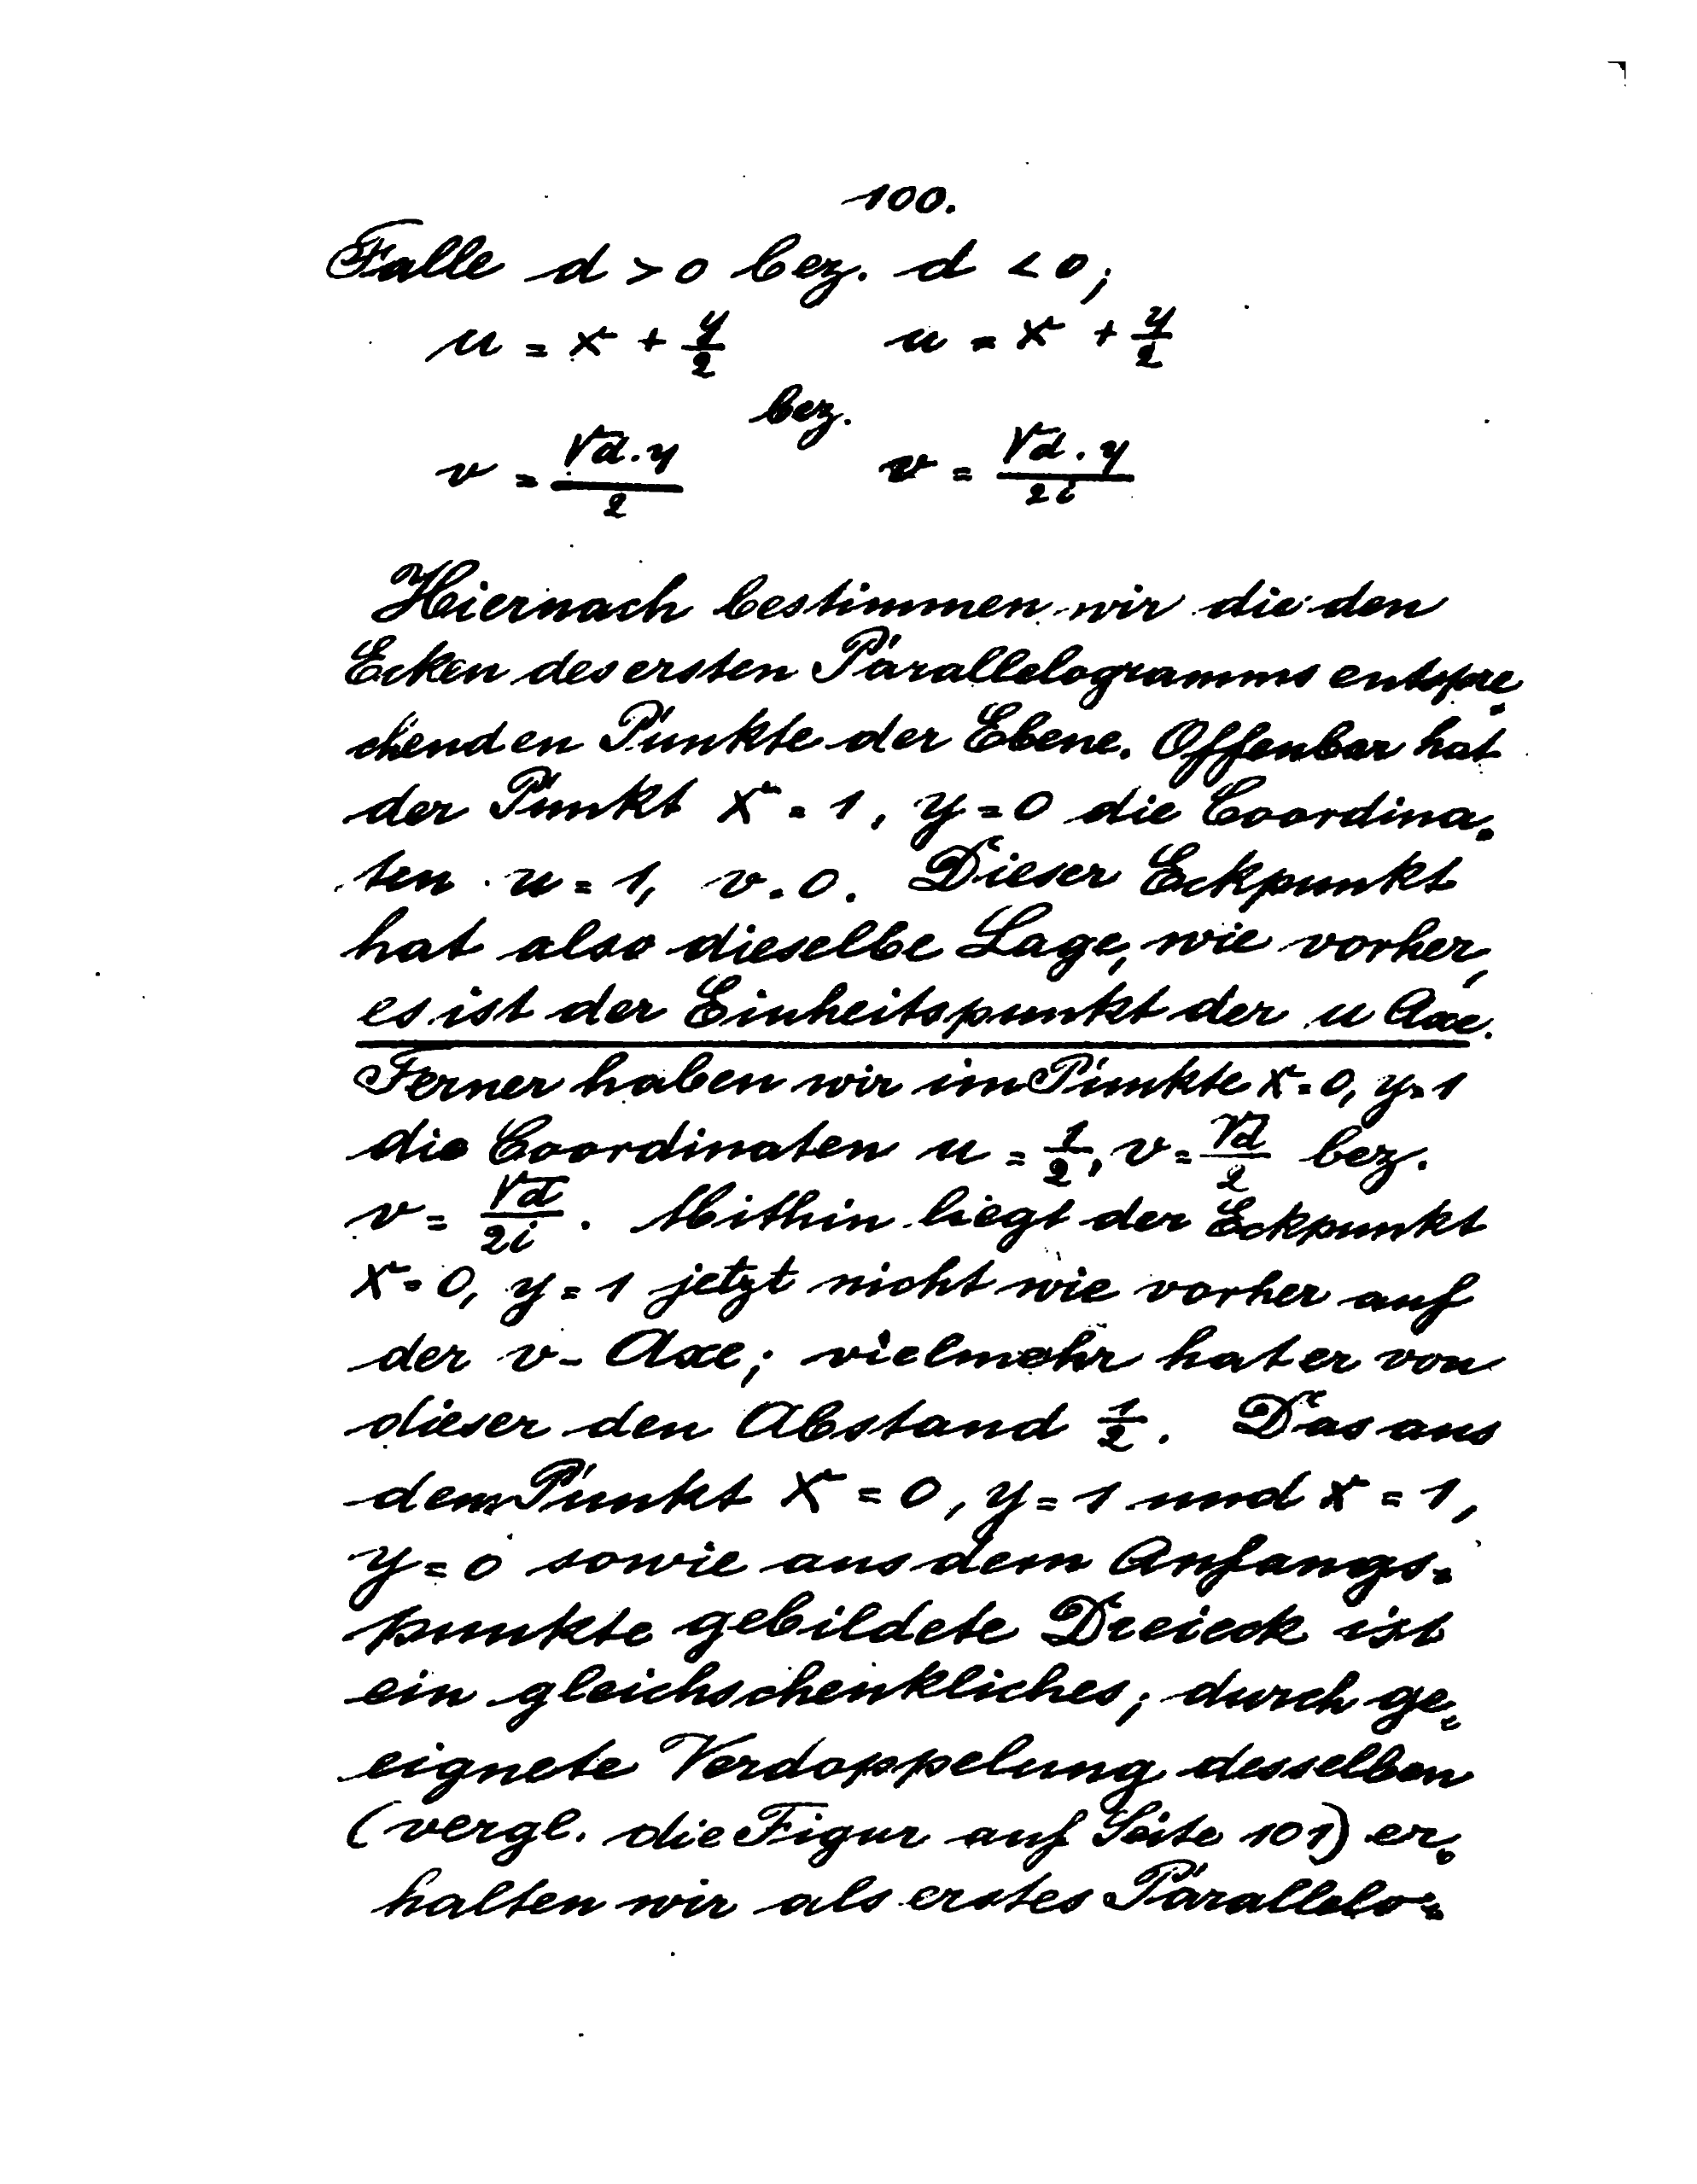 100.
Falle d > 0 bez. d < 0;
u = x + y/2 u = x + y/2
bez.
v = √d . y / 2 v = √d . y / 2i
Hiernach bestimmen wir die den
Ecken des ersten Parallelogramms entspre-
chenden Punkte der Ebene. Offenbar hat
der Punkt x = 1, y = 0 die Coordina-
ten u = 1, v = 0. Dieser Eckpunkt
hat also dieselbe Lage, wie vorher,
es ist der Einheitspunkt der u Axe.
Ferner haben wir im Punkte x = 0, y = 1
die Coordinaten u = 1/2, v = √d/2 bez.
v = √d/2i. Mithin liegt der Eckpunkt
x = 0, y = 1 jetzt nicht wie vorher auf
der v - Axe; vielmehr hat er von
dieser den Abstand 1/2. Das aus
dem Punkt x = 0, y = 1 und x = 1,
y = 0 sowie aus dem Anfangs-
punkte gebildete Dreieck ist
ein gleichschenkliches; durch ge-
eignete Verdoppelung desselben
(vergl. die Figur auf Seite 101) er-
halten wir als erstes Parallelo-